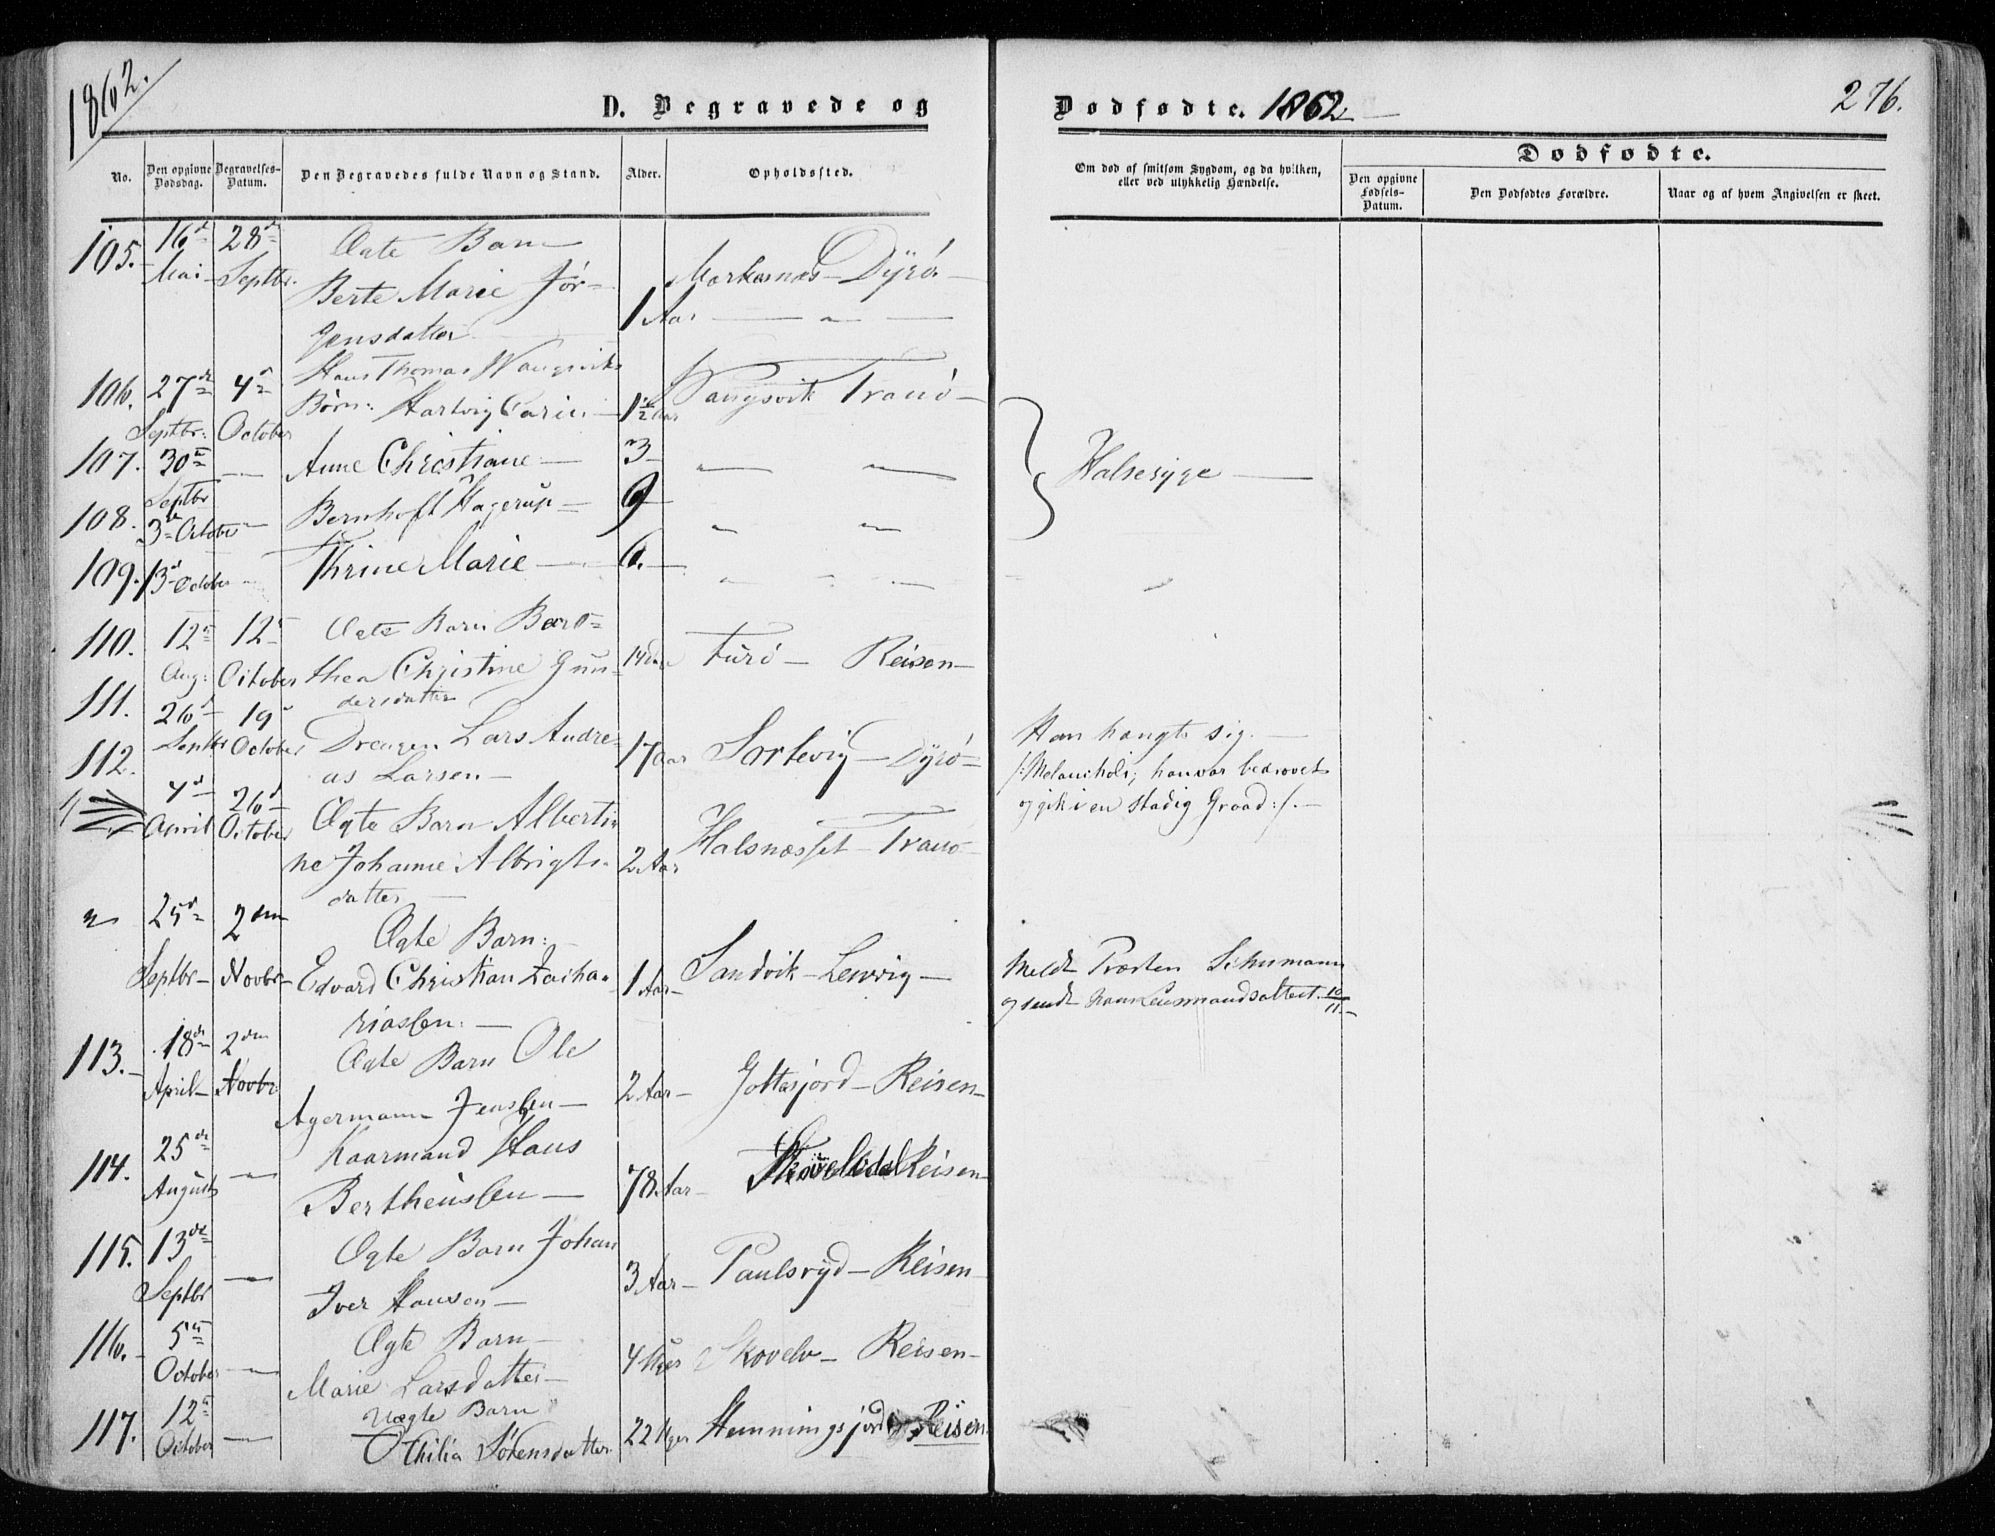 1862.
D. Begravede og
Dødfødte. 1862
276.
No.
Den opgivne Dødsdag.
Begravelses-Datum.
Den Begravedes fulde Navn og Stand.
Alder.
Opholdssted.
Om død af smitsom Sygdom, og da hvilken, eller ved ulykkelig Hændelse.
Dødfødte.
Den opgivne Fødsels-Datum.
Den Dødfødtes Forældre.
Naar og af hvem Angivelsen er skeet.
105. 16d 28d Ægte Barn
Mai Septbr. Berte Marie Jør- Dyrö
gensdatter 1 Aar
Hans Thomas Wangsviks
106. 27de 4de Børn: Hartvig 1½ Aar Vangsvik Tranö
Septbr: October
107. 30te Anne Christiane 3 " "
Septbr
108. 3de October Bernhoft Hagerup 9 " "
Halsesyge
109. 13d October Thrine Marie 6. " "
110. 12te 12te Ægte Barn Bero-
Aug: October thea Christine Gun- 14 Reisen
dersdatter
111. 26d 19 Drengen Lars Andre- 17 Aar Dyrö
Septbr October as Larsen
Han hængte sig.
/: Melancholi; han var bedrøvet
og gik i en stadig Graad :/.
112. 4d 26d Ægte Barn Albertin
April October ne Johanne Albrigts- 2 Aar Halsnæsset Tranö
datter
25d 2den Ægte Barn:
Septbr Novbr Edvard Christian Zacha- 1 Aar Sandvik Lenvig
riassen.
Meldt Præsten Schumann
og sendt ham Lensmandsattest 10/11
113. 18de 2den Ægte Barn Ole
April Novbr Agermann Jenssen 2 Aar Reisen
114. 25de Kaarmand Hans
August Bertheussen 78 Aar Reisen
115. 13de Ægte Barn Johan
Septbr Iver Hansen 3 Aar Paulsryd Reisen
116. 5te Ægte Barn
October Marie Larsdatter 4 Uger Skovelv Reisen
117. 12te Uægte Barn
October Othilia Sörensdatter 22 Uger Hemningsjord Reisen